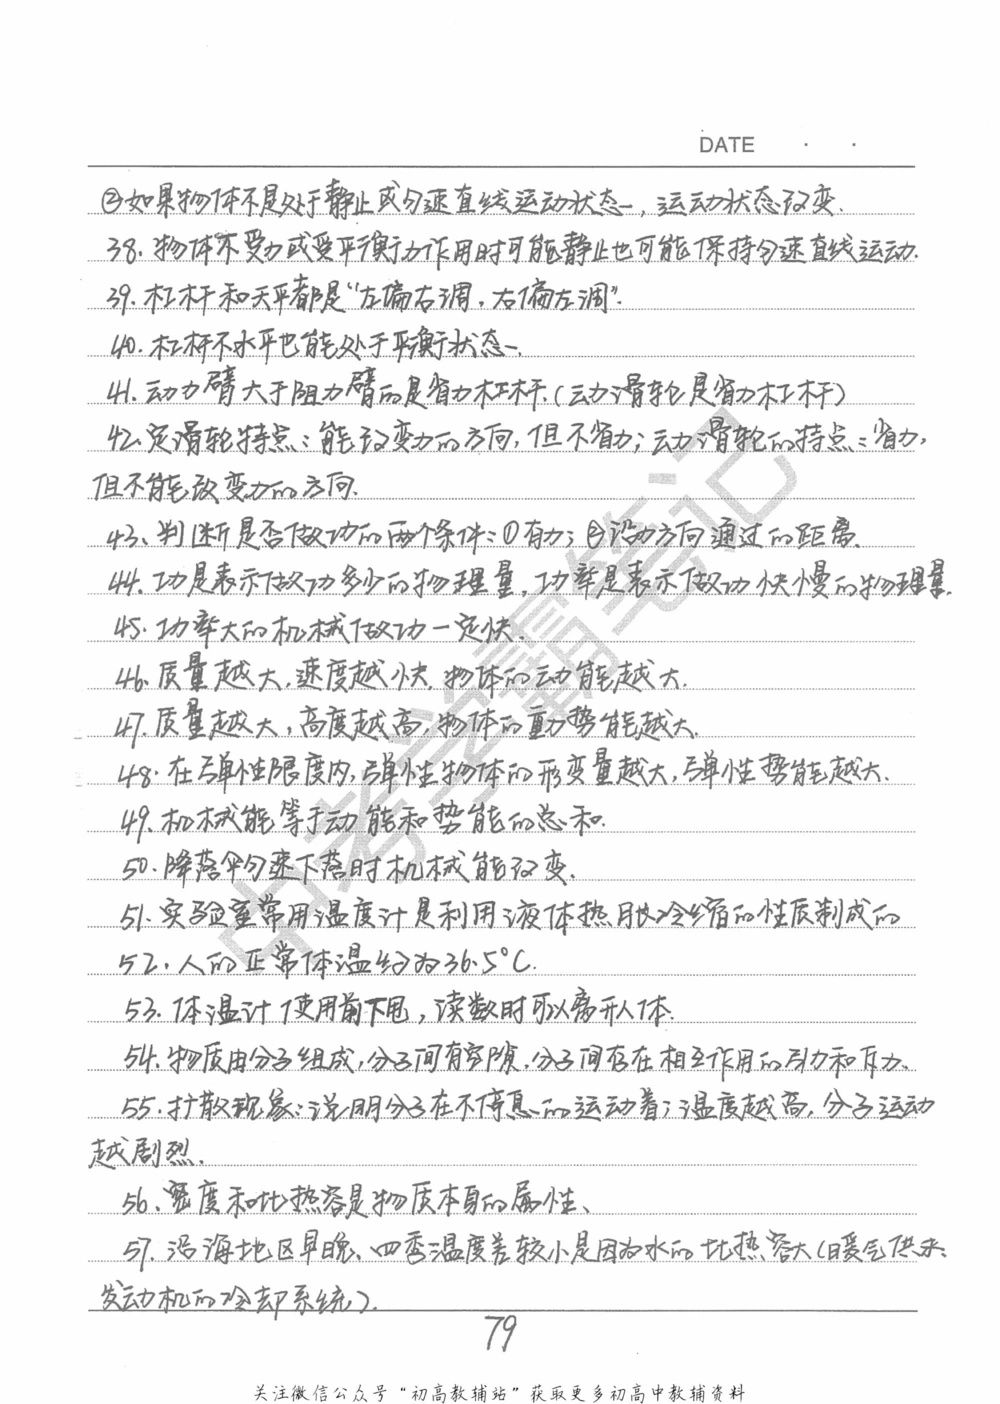 DATE · ·
②如果物体不是处于静止或匀速直线运动状态，运动状态改变.
38.物体不受力或受平衡力作用时可能静止也可能保持匀速直线运动.
39.杠杆和天平都是“左偏右调，右偏左调”.
40.杠杆不水平也能处于平衡状态.
41.动力臂大于阻力臂的是省力杠杆.(动滑轮是省力杠杆)
42.定滑轮特点:能改变力的方向,但不省力;动滑轮的特点:省力,
但不能改变力的方向.
43、判断是否做功的两个条件:①有力;②沿力方向通过的距离.
44.功是表示做功多少的物理量,功率是表示做功快慢的物理量.
45.功率大的机械做功一定快.
46.质量越大,速度越快,物体的动能越大.
47.质量越大,高度越高,物体的重力势能越大.
48.在弹性限度内,弹性物体的形变量越大,弹性势能越大.
49.机械能等于动能和势能的总和.
50.降落伞匀速下落时机械能改变.
51.实验室常用温度计是利用液体热胀冷缩的性质制成的
52.人的正常体温约为36.5℃.
53.体温计使用前下甩,读数时可以离开人体.
54.物质由分子组成,分子间有空隙,分子间存在相互作用的引力和斥力.
55.扩散现象:说明分子在不停息的运动着;温度越高,分子运动
越剧烈.
56、密度和比热容是物质本身的属性、
57.沿海地区早晚、四季温度差较小是因为水的比热容大(暖气供水、
发动机的冷却系统).
79
中考学霸笔记
关注微信公众号“初高教辅站”获取更多初高中教辅资料